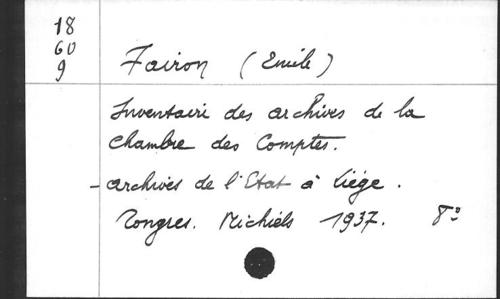 18
60
9
Fairon (Emile)
Inventaire des archives de la
Chambre des Comptes.
- archives de l'Etat à Liège.
Tongres. Michiels 1937. 8°